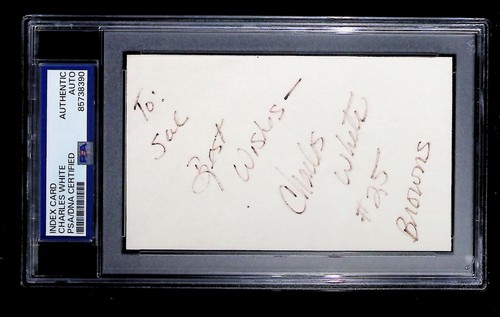 INDEX CARD
CHARLES WHITE
PSA/DNA CERTIFIED
AUTHENTIC
AUTO
85738390
PSA
To:
Sal
Best
Wishes-
Charles
White
#25
Browns